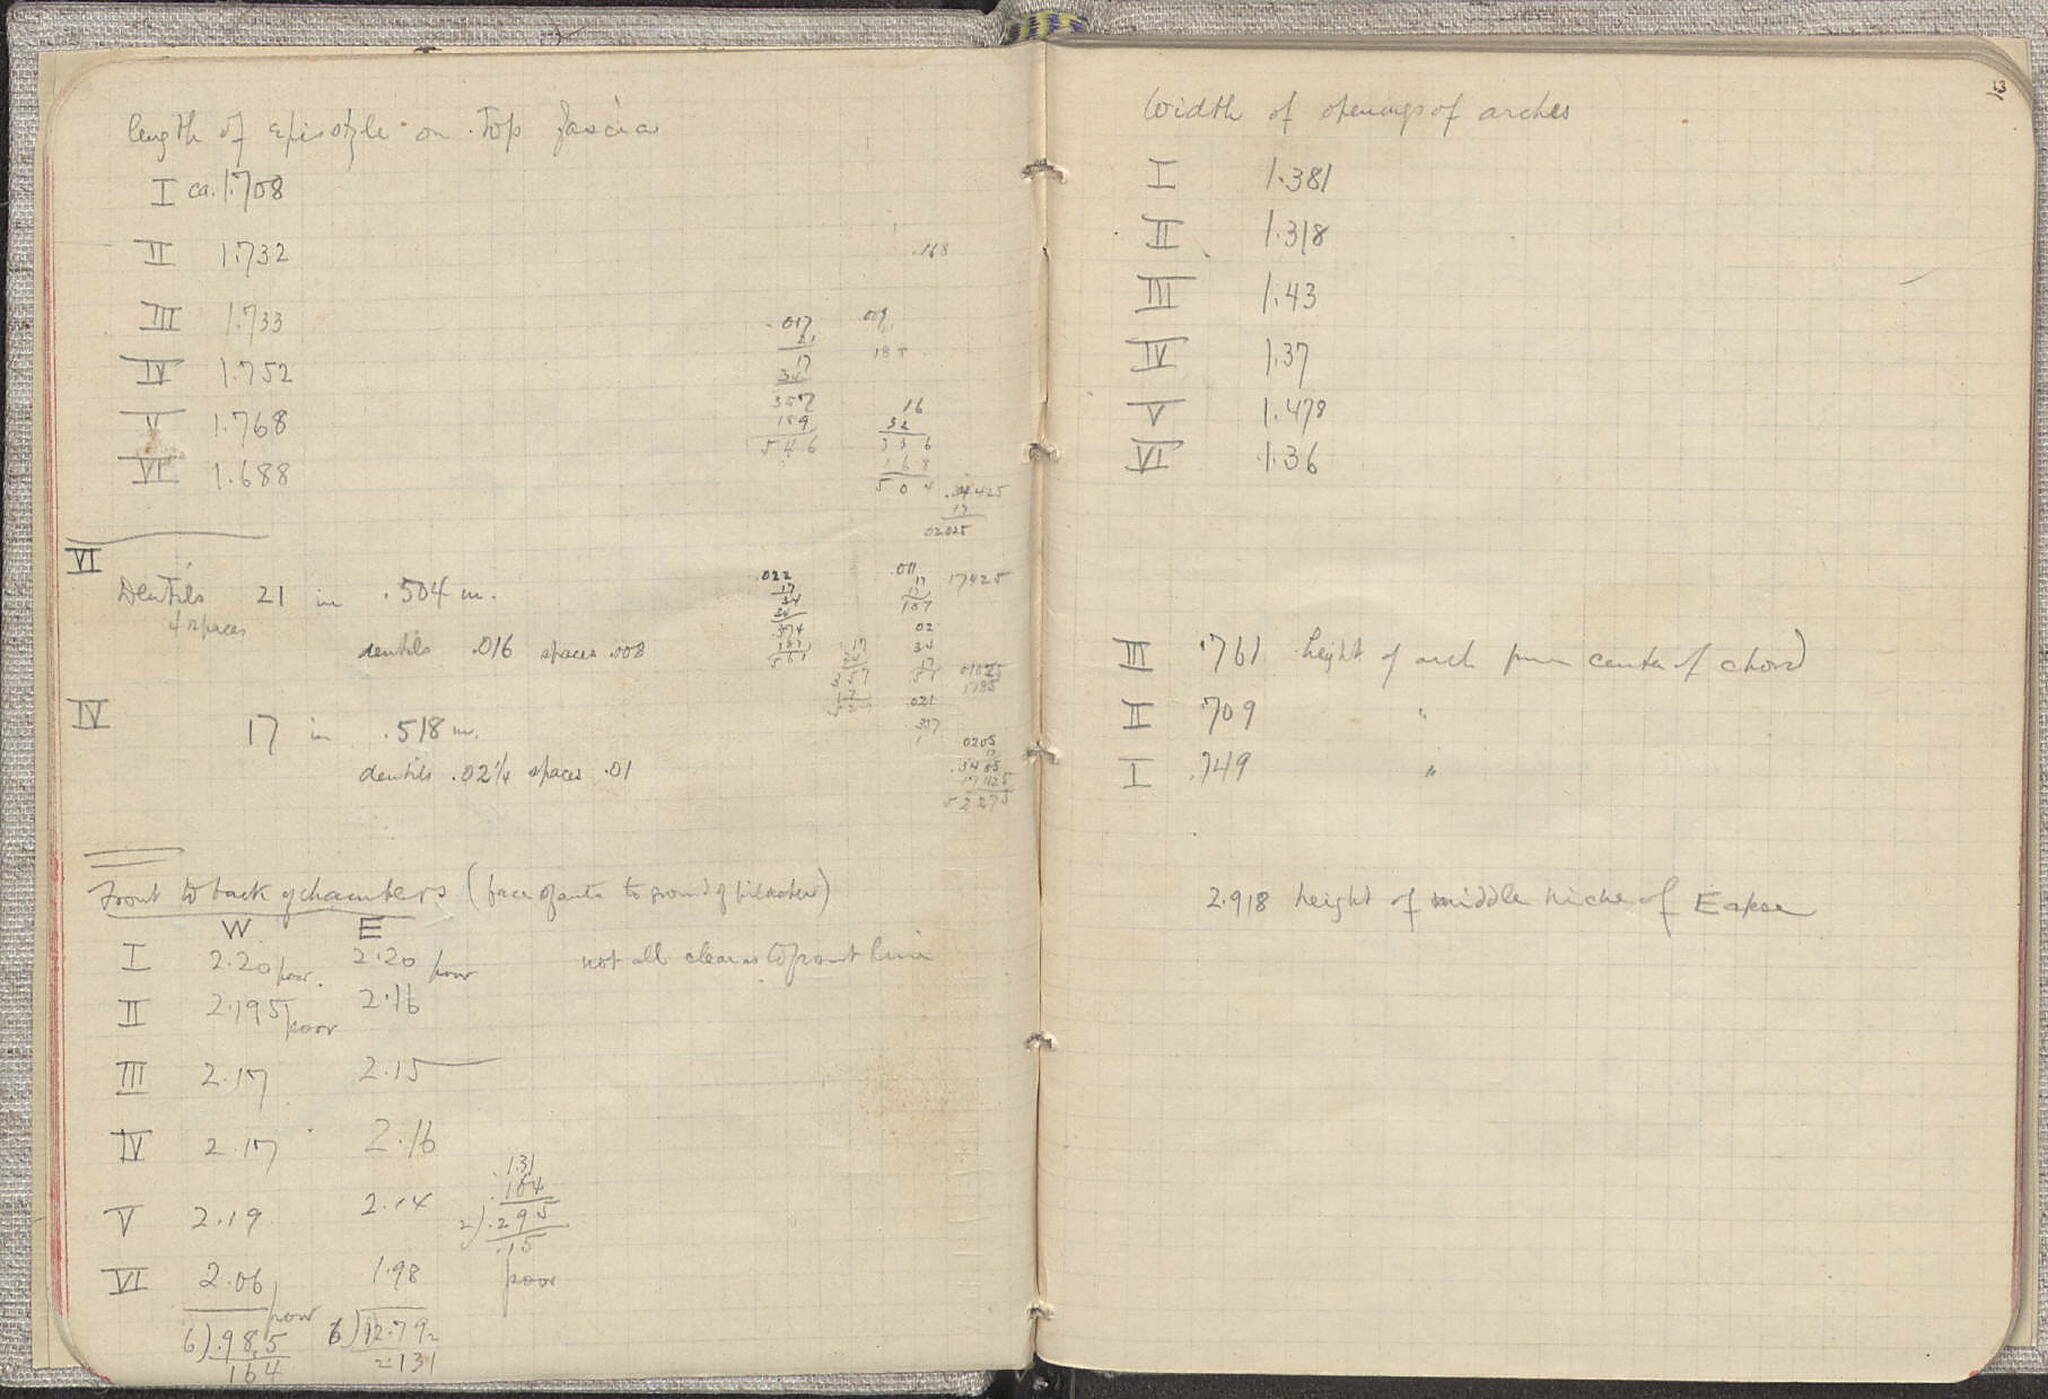 length of epistyle on top fascia
I ca. 1.708
II 1.732
III 1.733
IV 1.752
V 1.768
VI 1.688
.168
.017
21
17
34
357
189
546
009
16
32
336
168
504
17
02025
VI
Dentils 21 in .504 m.
& spaces
dentils .016 spaces .008
.022
17
34
34
374
187
561
.011
17
17
187
17425
02
34
17
357
17
021
357
IV
17 in .518 m.
dentils .02¼ spaces .01
0205
17
.3485
17425
52275
Front to back of chambers (face of anta to front of pilaster)
W E
I 2.20 poor. 2.20 poor not all clear as to front line
II 2.195 poor 2.16
III 2.17 2.15
IV 2.17 2.16
V 2.19 2.14
.131
.164
2) .295
.15
VI 2.06 poor 1.98 poor
6) .985
164
6) 12.79
2131
13
Width of openings of arches
I 1.381
II 1.318
III 1.43
IV 1.37
V 1.478
VI 1.36
III .761 height of arch from center of chord
II .709 "
I .749 "
2.918 height of middle niche of